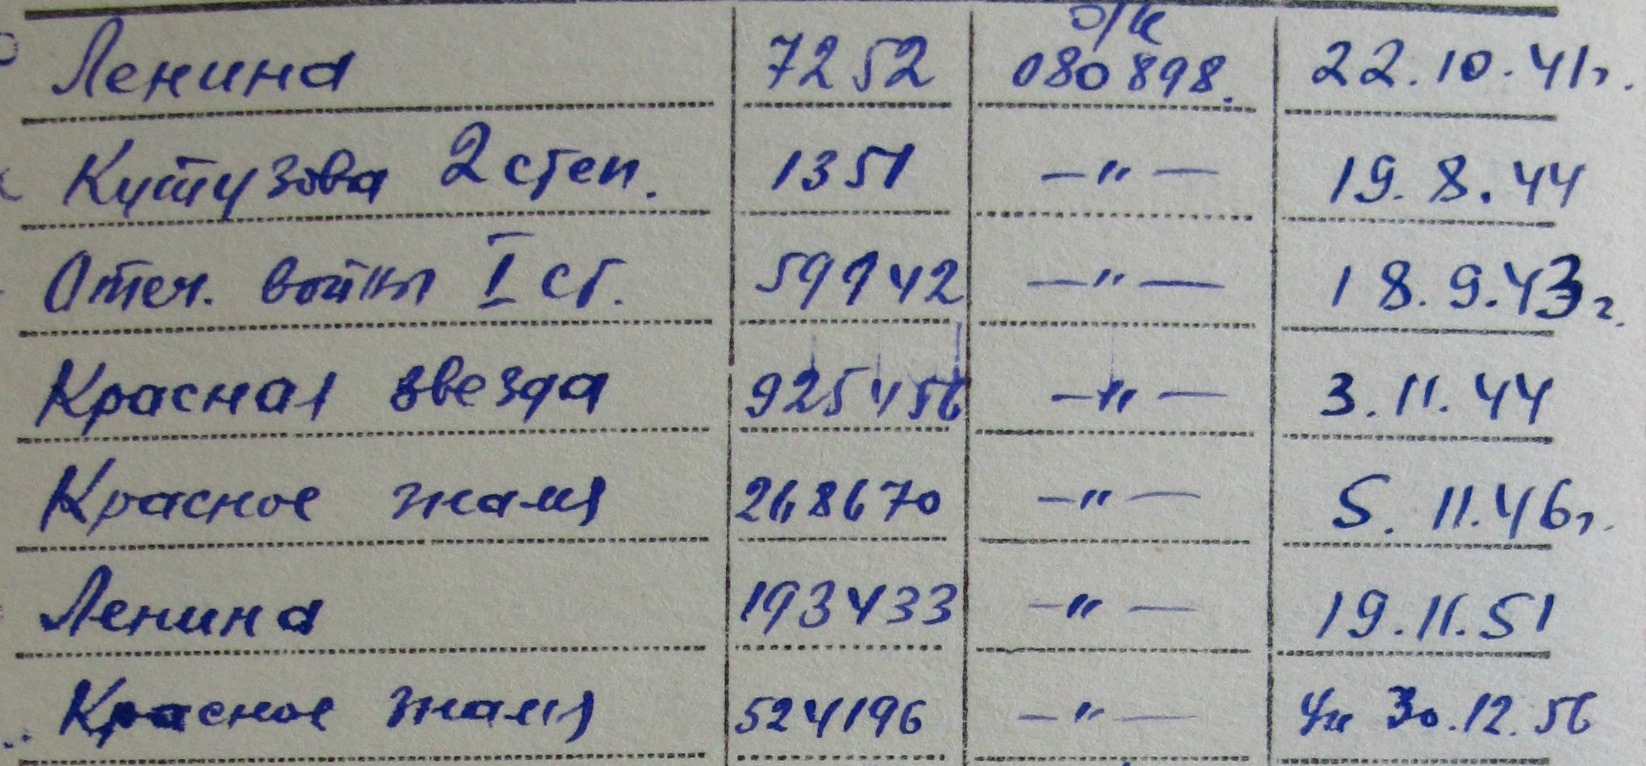 о/к
Ленина 7252 080898. 22.10.41г.
Кутузова 2 степ. 1351 —〃— 19.8.44
Отеч. войны I ст. 59942 —〃— 18.9.43г.
Красная звезда 925456 —〃— 3.11.44
Красное знамя 268670 —〃— 5.11.46г.
Ленина 193433 —〃— 19.11.51
Красное знамя 524196 —〃— Ук 30.12.56